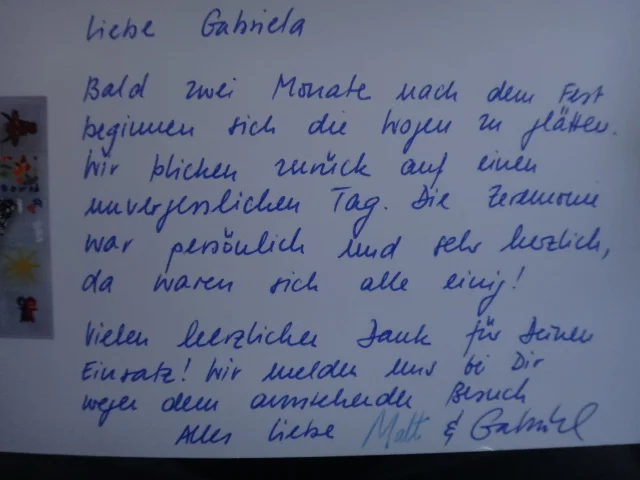 Liebe Gabriela
Bald zwei Monate nach dem Fest
beginnen sich die Wogen zu glätten.
Wir blicken zurück auf einen
unvergesslichen Tag. Die Zeremonie
war persönlich und sehr herzlich,
da waren sich alle einig!
Vielen herzlichen Dank für Deinen
Einsatz! Wir melden uns bei Dir
wegen dem ausstehenden Besuch
Alles Liebe Matt & Gabriel